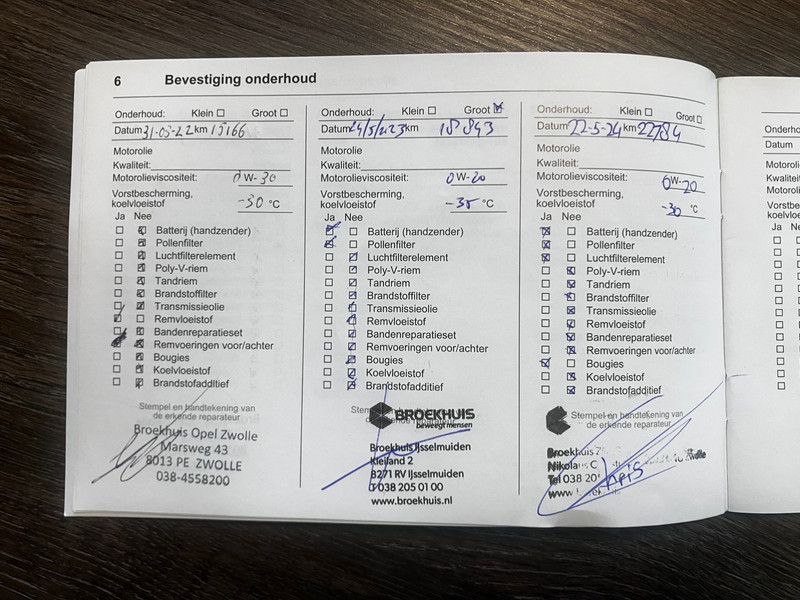 6 Bevestiging onderhoud
Onderhoud: Klein ☐ Groot ☐
Datum 31-03-22 km 15166
Motorolie
Kwaliteit:
Motorolieviscositeit: 0 W-30
Vorstbescherming,
koelvloeistof -30 °C
Ja Nee
☐ ☒ Batterij (handzender)
☐ ☒ Pollenfilter
☐ ☒ Luchtfilterelement
☐ ☒ Poly-V-riem
☐ ☒ Tandriem
☐ ☒ Brandstoffilter
☐ ☒ Transmissieolie
☒ ☐ Remvloeistof
☐ ☒ Bandenreparatieset
☒ ☒ Remvoeringen voor/achter
☐ ☒ Bougies
☐ ☒ Koelvloeistof
☐ ☒ Brandstofadditief
Stempel en handtekening van
de erkende reparateur
Broekhuis Opel Zwolle
Marsweg 43
8013 PE ZWOLLE
038-4558200
Onderhoud: Klein ☐ Groot ☒
Datum 24/5/2023 km 18 843
Motorolie
Kwaliteit:
Motorolieviscositeit: 0 W-20
Vorstbescherming,
koelvloeistof -35 °C
Ja Nee
☒ ☐ Batterij (handzender)
☒ ☐ Pollenfilter
☐ ☒ Luchtfilterelement
☐ ☒ Poly-V-riem
☐ ☒ Tandriem
☐ ☒ Brandstoffilter
☐ ☒ Transmissieolie
☐ ☒ Remvloeistof
☐ ☒ Bandenreparatieset
☐ ☒ Remvoeringen voor/achter
☐ ☒ Bougies
☐ ☒ Koelvloeistof
☐ ☒ Brandstofadditief
BROEKHUIS
beweegt mensen
Broekhuis IJsselmuiden
Kleiland 2
8271 RV IJsselmuiden
T 038 205 01 00
www.broekhuis.nl
Onderhoud: Klein ☐ Groot ☐
Datum 22-5-24 km 22784
Motorolie
Kwaliteit:
Motorolieviscositeit: 0W-20
Vorstbescherming,
koelvloeistof -30 °C
Ja Nee
☒ ☐ Batterij (handzender)
☒ ☐ Pollenfilter
☒ ☐ Luchtfilterelement
☐ ☒ Poly-V-riem
☐ ☒ Tandriem
☐ ☒ Brandstoffilter
☐ ☒ Transmissieolie
☐ ☒ Remvloeistof
☐ ☒ Bandenreparatieset
☐ ☒ Remvoeringen voor/achter
☒ ☐ Bougies
☐ ☒ Koelvloeistof
☐ ☒ Brandstofadditief
Stempel en handtekening van
de erkende reparateur
Tel 038
Datum
Ja Nee